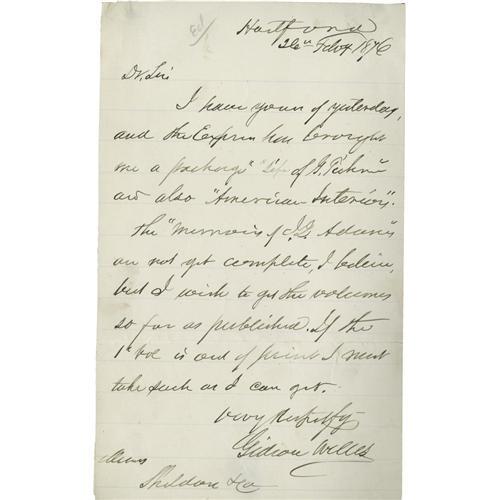 Hartford
26th Feby 1876
Dr Sir
I have yours of yesterday,
and the Express has brought
me a package "Life of G. Tickn"
and also "American Interiors".
The "Memoirs of J.Q. Adams"
are not yet complete, I believe,
but I wish to get the volumes
so far as published. If the
1st Vol is out of print I must
take such as I can get.
Very Respectfy
Gideon Welles
Messrs
Sheldon & Co